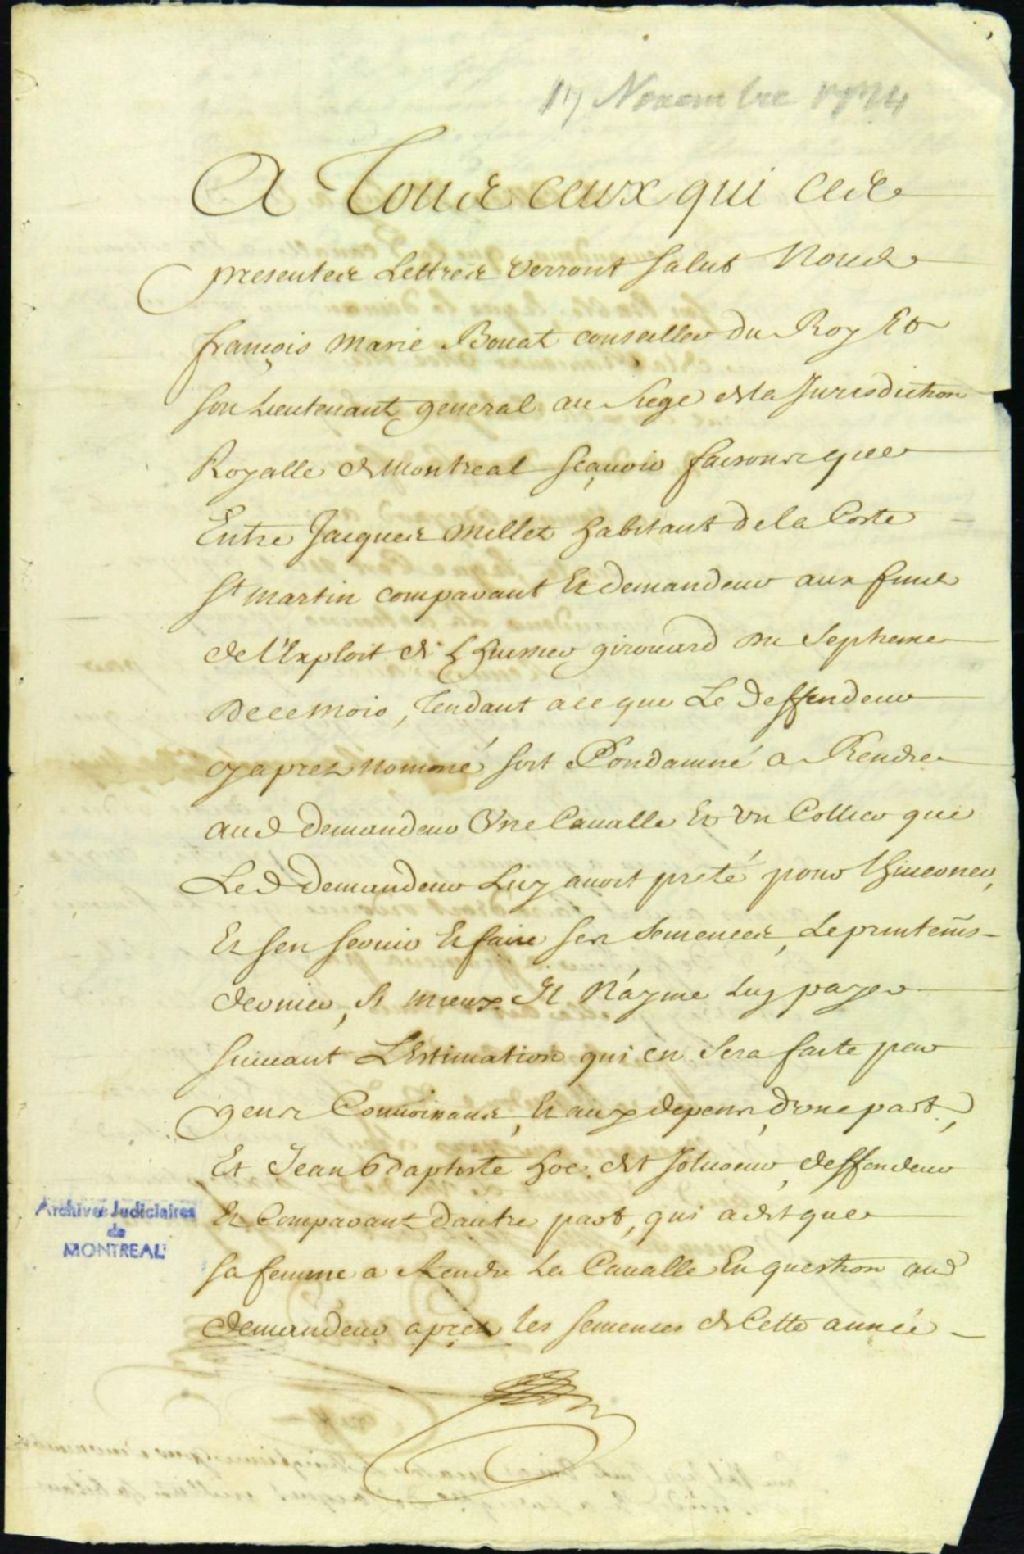 17 Novembre 1724
A Tous ceux qui ces
presentes Lettres verront salut Nous
françois marie Bouat conseiller du Roy Et
son Lieutenant general au siege de la Jurisdiction
Royalle de Montreal sçavoir faisons que
Entre Jacques Millet habitant de la Coste
St martin comparant Et demandeur aux fins
de l'Exploit de L'huissier girouard du septieme
De ce mois, Tendant a ce que Le Deffendeur
cy apres nommé soit Condamné a Rendre
aud demandeur Une Cavalle Et un Collier que
Led demandeur Luy avoit preté pour
Et sen servir Et faire ses semences, Le printems
dernier, si mieux Il N'ayme Luy payer
suivant L'Estimation qui en sera faite par
gens Connoissans, Et aux depens, d'une part,
Et Jean Baptiste hoc dit Jolicoeur, deffendeur
Et Comparant d'autre part, qui a dit que
sa femme a Rendu La Cavalle En question aud
demandeur apres les semences de Cette année
Archives Judiciaires
de
MONTREAL